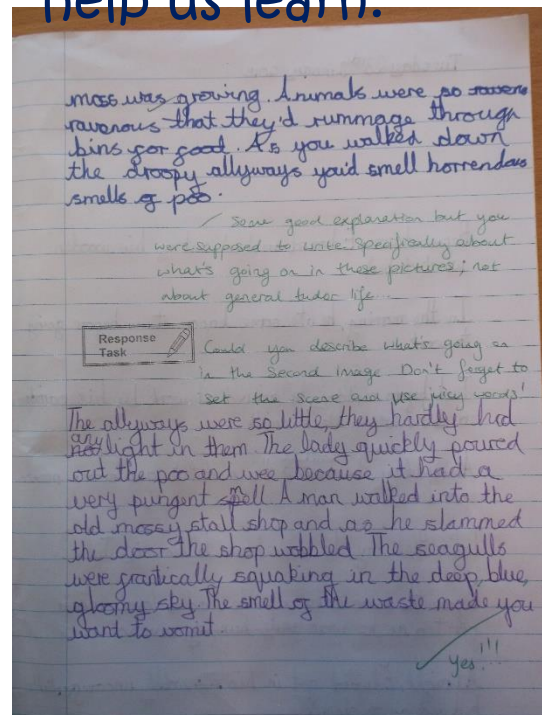 help us learn.
moss was growing. Animals were so ravens
ravenous that they'd rummage through
bins for food. As you walked down
the droopy allyways you'd smell horrendous
smells of poo.
Some good explanation but you
were supposed to write specifically about
what's going on in these pictures, not
about general tudor life.
Response
Task
Could you describe what's going on
in the second image. Don't forget to
set the scene and use juicy words!
The allyways were so little, they hardly had
any light in them. The lady quickly poured
out the poo and wee because it had a
very pungent smell. A man walked into the
old mossy stall shop and as he slammed
the door the shop wobbled. The seagulls
were frantically squaking in the deep, blue,
gloomy sky. The smell of the waste made you
want to vomit
Yes!!!